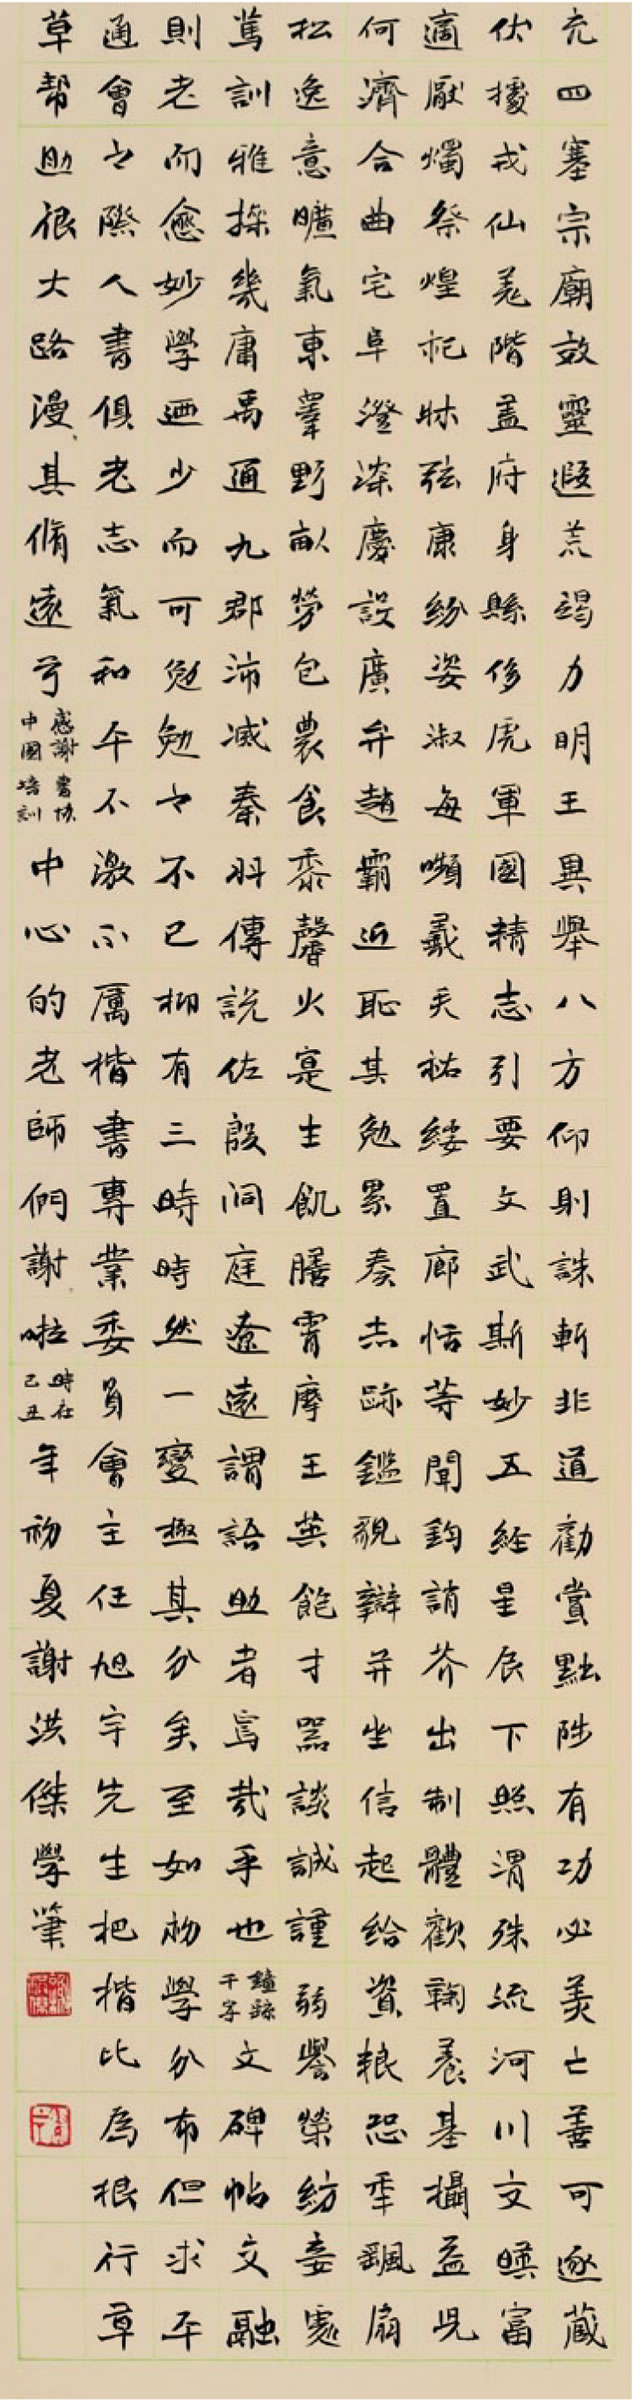 充四塞宗廟效靈遐荒竭力明王異舉八方仰則誅斬非道勸賞黜陟有功必美亡善可逐藏
伏擾戎仙羌階蓋府身縣修虎軍國精志引要文武斯妙五經星辰下照渭殊流河川文暎富
適厭燭祭煌祀昧弦康紛姿淑每嚬羲矢祐緌置廊恬等聞鈞誚芥出制體歡鞠養基攝益兄
何濟合曲宅阜澄深慶設廣弁趙霸近恥其勉累奏赤跡鑑貌辯并坐信起給資粮恐秊颻扇
松逸意曠氣東羣野畝勞包農食黍馨火寔士飢膳霄摩王英飽才器談誠謹弱譽榮紡妾寔
篤訓雅操幾庸禹通九郡沛滅秦羽傳說佐殷洞庭遼遠謂語助者焉哉乎也鍾繇千字文碑帖文融
則老而愈妙學迺少而可勉勉之不已抑有三時時然一變極其分矣至如初學分布但求平
通會之際人書俱老志氣和平不激不厲楷書專業委員會主任旭宇先生把楷比爲根行草
草帮助很大路漫其脩遠兮感謝書協中國培訓中心的老師們謝啦時在己丑年初夏謝洪傑學筆